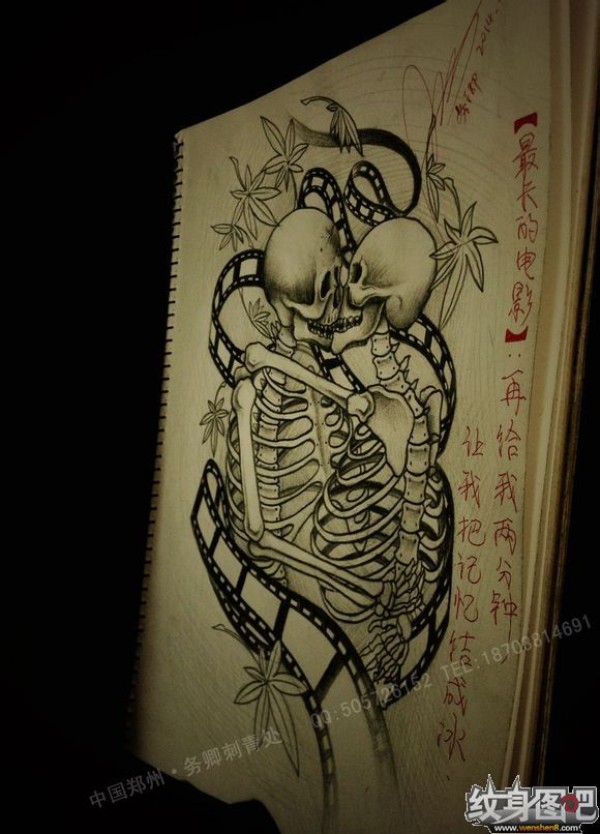 2014.
【最长的电影】:再给我两分钟
让我把记忆结成冰.
中国郑州·务卿刺青处 QQ: TEL:18703814691
纹身图吧
www.wenshen8.com